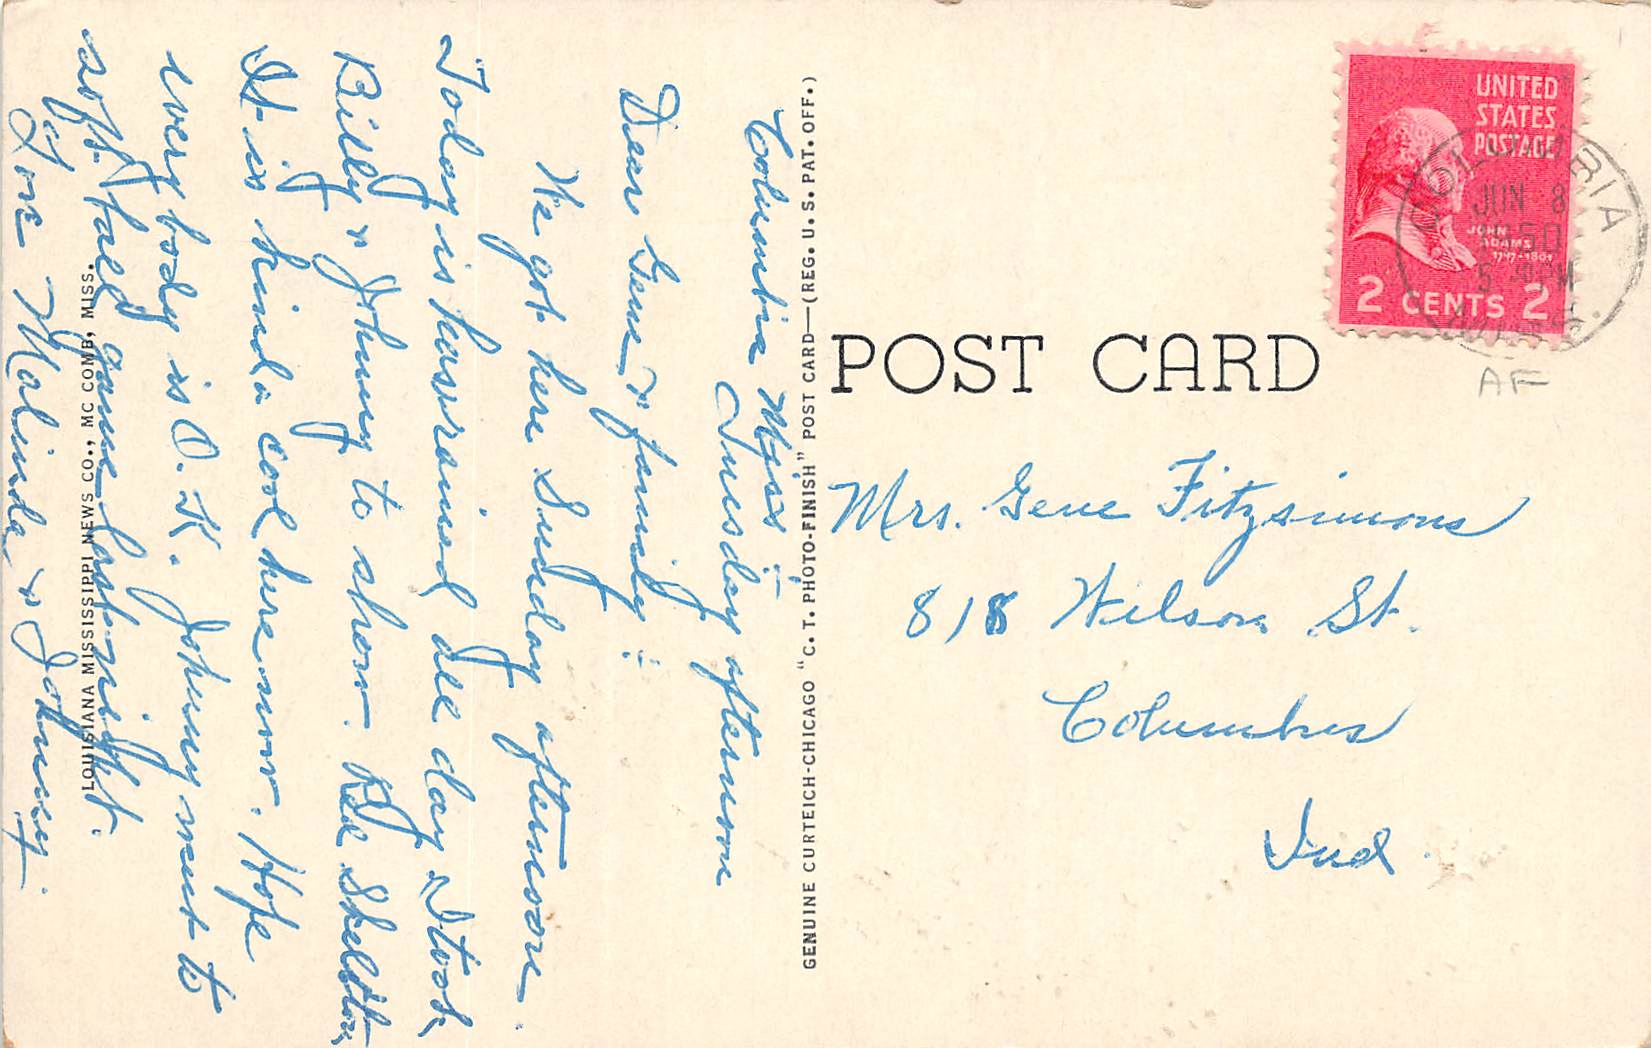 Columbia Miss :-
Tuesday afternoon
Dear Gene & family :-
We got here Sunday afternoon.
Today is has rained all day & I took
Billy & Johnny to show. Red Skelton,
It is kinda cool here now. Hope
everybody is O.K. Johnny went to
soft ball game last night.
Love Malinda & Johnny.
LOUISIANA MISSISSIPPI NEWS CO., MC COMB, MISS.
GENUINE CURTEICH-CHICAGO "C. T. PHOTO-FINISH" POST CARD—(REG. U. S. PAT. OFF.)
POST CARD
UNITED
STATES
POSTAGE
JOHN
ADAMS
1797-1801
2 CENTS 2
JUN 8
50
PM
AF
Mrs. Gene Fitzsimons
818 Wilson St.
Columbus
Ind.